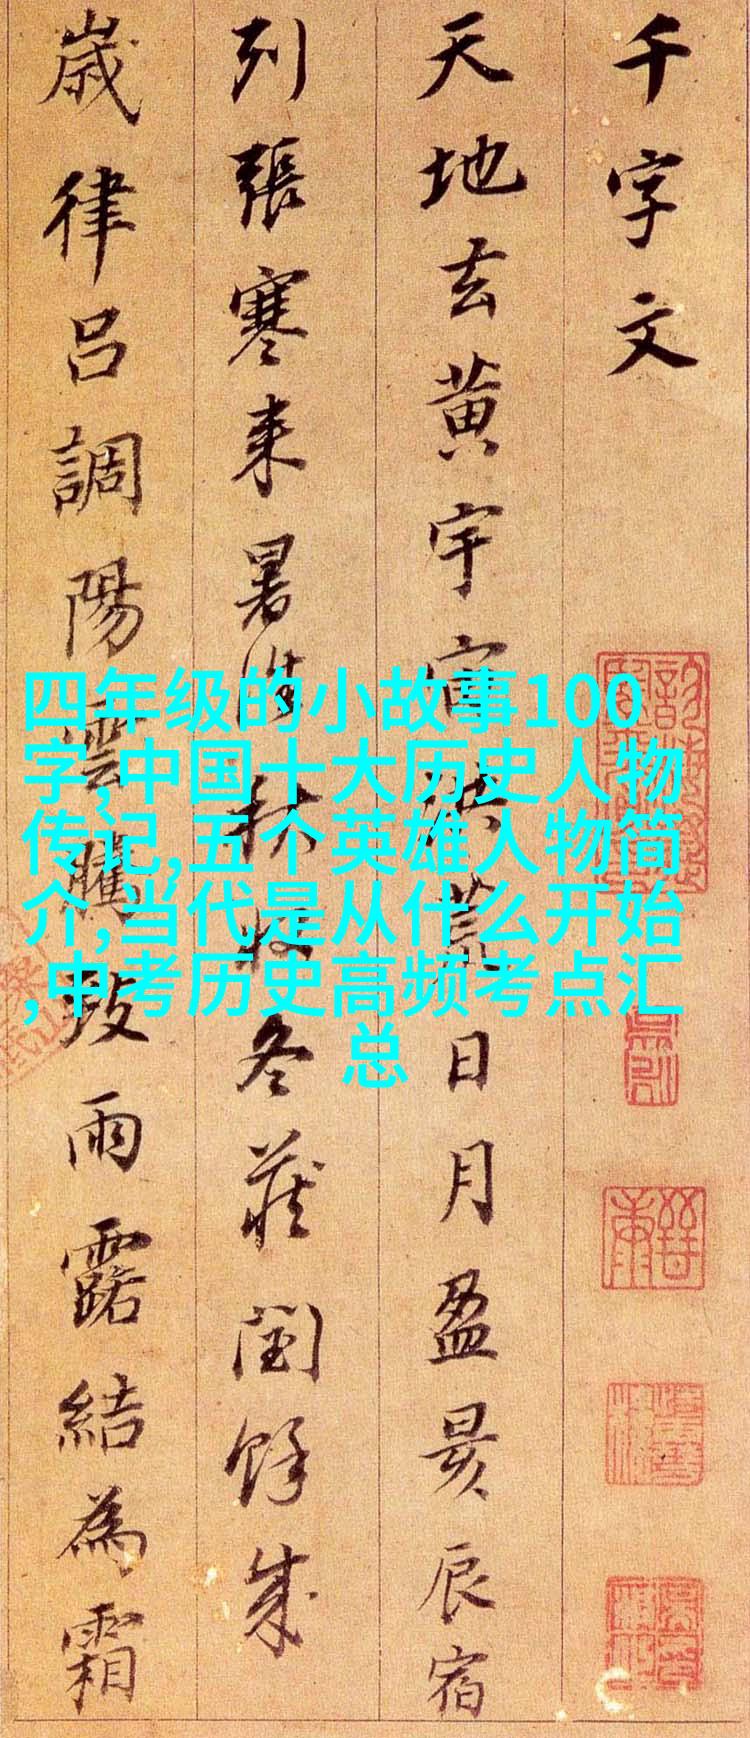 千字文
天地玄黄宇宙洪荒日月盈昃辰宿
列張寒来暑往秋收冬藏閏餘成
歲律呂調陽雲騰致雨露結為霜
四年级的小故事100
字,中国十大历史人物
传记,五个英雄人物简
介,当代是从什么开始
,中考历史高频考点汇
总